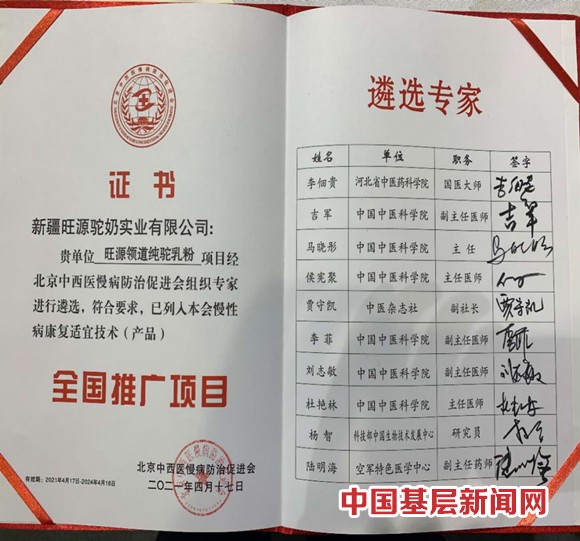 证书
新疆旺源驼奶实业有限公司:
贵单位 旺源领道纯驼乳粉 项目经
北京中西医慢病防治促进会组织专家
进行遴选，符合要求，已列入本会慢性
病康复适宜技术（产品）
全国推广项目
北京中西医慢病防治促进会
二〇二一年四月十七日
有效期：2021年4月17日-2024年4月16日
遴选专家
姓名 单位 职务 签字
李佃贵 河北省中医药科学院 国医大师
吉军 中国中医科学院 副主任医师 吉军
马晓彤 中国中医科学院 主任
侯宪聚 中国中医科学院 主任医师
贾守凯 中医杂志社 副社长
李菲 中国中医科学院 副主任医师
刘志敏 中国中医科学院 副主任医师
杜艳林 中国中医科学院 主任医师
杨智 科技部中国生物技术发展中心 研究员
陆明海 空军特色医学中心 副主任药师
中国基层新闻网